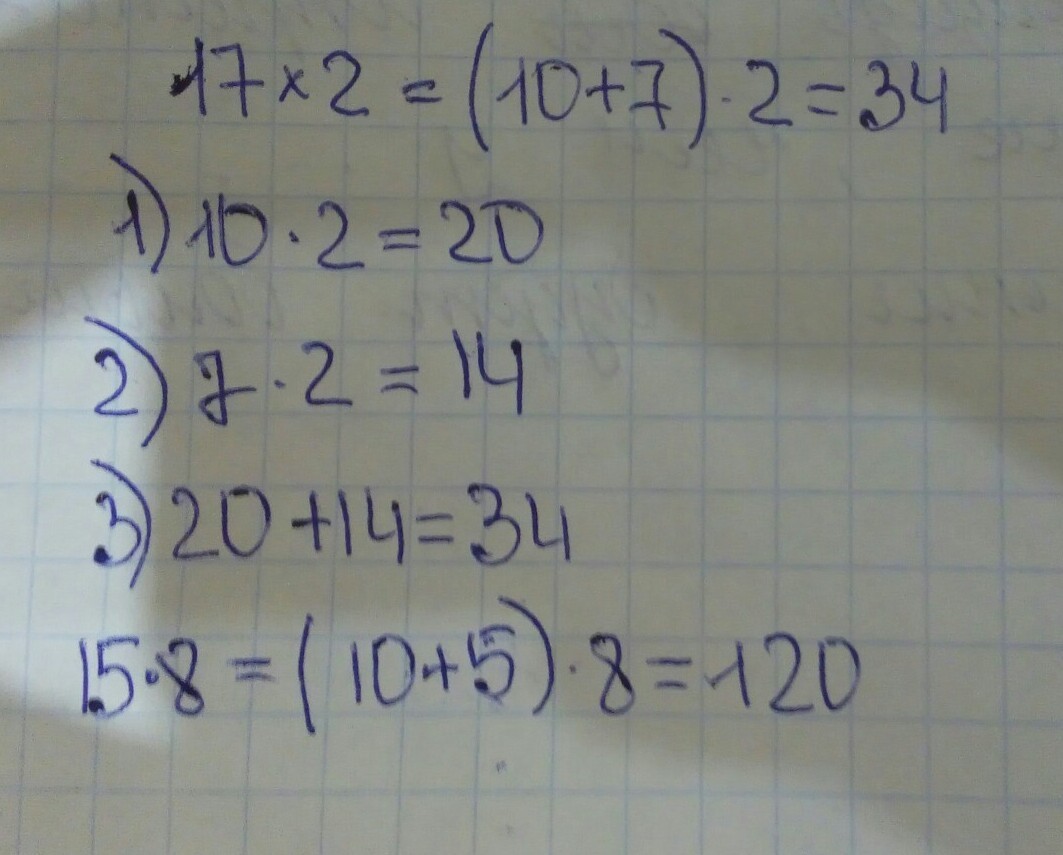 17×2=(10+7)·2=34
1) 10·2=20
2) 7·2=14
3) 20+14=34
15·8=(10+5)·8=120